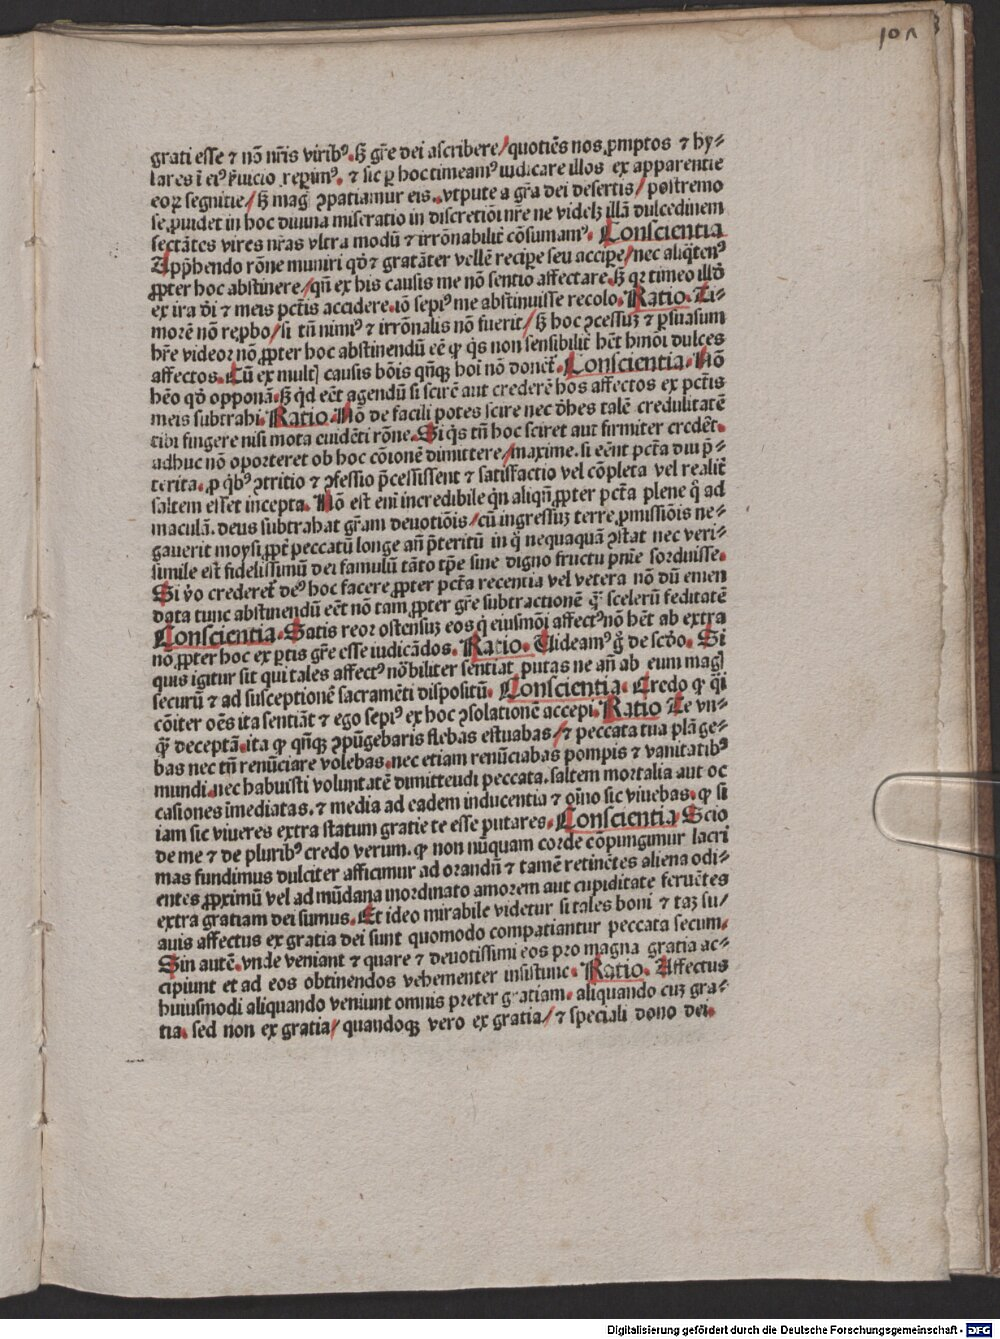 101
grati esse ⁊ nō nr̄is viribꝰ. sꝫ gr̄e dei ascribere/ quotiēs nos ꝓmptos ⁊ hy⸗
lares ī eiꝰ ẜuicio reꝑimꝰ. ⁊ sic ꝑ hoc timeamꝰ iudicare illos ex apparente
eoꝝ segnitie/ sꝫ magꝭ ꝯpatiamur eis. vtpute a gr̄a dei desertis/ postremo
se ꝓuidet in hoc diuina miseratio in discretiōi nr̄e ne videlꝫ illā dulcedinem
sectātes vires nr̄as vltra modū ⁊ irrōnabilit̄ cōsumamꝰ. Conscientia
Apꝑhendo rōne muniri qd̓ ⁊ gratāter vellē recipe seu accipe/ nec aliq̄tenꝰ
ꝓpter hoc abstinere/ qn̄ ex his causis me nō sentio affectare. sꝫ qꝛ timeo illd̓
ex ira d̓i ⁊ meis pctīs accidere. iō sepiꝰ me abstinuisse recolo. Ratio. Ti⸗
morē nō reꝓbo/ si tn̄ nimiꝰ ⁊ irrōnalis nō fuerit/ sꝫ hoc ꝯcessuꝫ ⁊ ꝑsuasum
hr̄e videoꝛ nō ꝓpter hoc abstinendū eē ꝙ q̇s non sensibilit̄ hēt hmōi dulces
affectos. Cū ex multꝭ causis bōis qn̄qꝫ hoī nō donet̄. Conscientia. Nō
hēo qd̓ opponā. sꝫ qͥd eēt agendū si scirē aut crederē hos affectos ex pctīs
meis subtrahi. Ratio. Nō de facili potes scire nec d̓bes talē credulitatē
tibi fingere nisi mota euidēti rōne. Si q̇s tn̄ hoc sciret aut firmiter credēt.
adhuc nō oporteret ob hoc cōionē dimittere/ maxime. si eēnt pctā diu p̄⸗
terita. ꝓ qͥbꝰ ꝯtritio ⁊ ꝯfessio p̄cessissent ⁊ satisfactio vel cōpleta vel realit̄
saltem esset incepta. Nō est enī incredibile qͥn aliqn̄ ꝓpter pctā plene q̊ ad
maculā. deus subtrahat gr̄am deuotiōis/ cū ingressuꝫ terre ꝓmissiōis ne⸗
gauerit moysi ꝓpt̄ peccatū longe an̄ p̄teritū in q̊ nequaquā ꝯstat nec veri⸗
simile est fidelissimū dei famulū tāto tꝑe sine digno fructu pnīe sorduisse.
Si v̊o crederet̄ deꝰ hoc facere ꝓpter pctā recentia vel vetera nō dū emen
data tunc abstinendū eēt nō tam ꝓpter gr̄e subtractionē qͣꝫ scelerū feditatē
Conscientia. Satis reoꝛ ostensuꝫ eos q̇ eiusmōi affectꝰ nō hēt ab extra
nō ꝓpter hoc exꝑtis gr̄e esse iudicādos. Ratio. Uideamꝰ g̊ de scd̓o. Si
quis igitur sit qui tales affectꝰ nōbiliter sentiat putas ne an̄ ab eum magꝭ
securū ⁊ ad susceptionē sacramēti dispositū. Conscientia. Credo ꝙ qͣi
cōiter oēs ita sentiāt ⁊ ego sepiꝰ ex hoc ꝯsolationē accepi. Ratio Te vn⸗
qͣꝫ deceptā. ita ꝙ qn̄qꝫ ꝯpūgebaris flebas estuabas/ ⁊ peccata tua plāge⸗
bas nec tn̄ renūciare volebas. nec etiam renūciabas pompis ⁊ vanitatibꝰ
mundi. nec habuisti voluntatē dimitteudi peccata. saltem mortalia aut oc
casiones īmediatas. ⁊ media ad eadem inducentia ⁊ oīno sic viuebas. ꝙ si
iam sic viueres extra statum gratie te esse putares. Conscientia Scio
de me ⁊ de pluribꝰ credo verum. ꝙ non nūquam corde cōpungimur lacri
mas fundimus dulciter afficimur ad orandū ⁊ tamē retinētes aliena odi⸗
entes ꝓximū vel ad mūdana inordinato amorem aut cupiditate feruētes
extra gratiam dei sumus. Et ideo mirabile videtur si tales boni ⁊ taꝫ su/
auis affectus ex gratia dei sunt quomodo compatiantur peccata secum.
Sin autē. vnde veniant ⁊ quare ⁊ deuotissimi eos pro magna gratia ac⸗
cipiunt et ad eos obtinendos vehementer insistunt. Ratio. Affectus
huiusmodi aliquando veniunt omnis preter gratiam. aliquando cuꝫ gra⸗
tia. sed non ex gratia/ quandoqꝫ vero ex gratia/ ⁊ speciali dono dei.
Digitalisierung gefördert durch die Deutsche Forschungsgemeinschaft - DFG